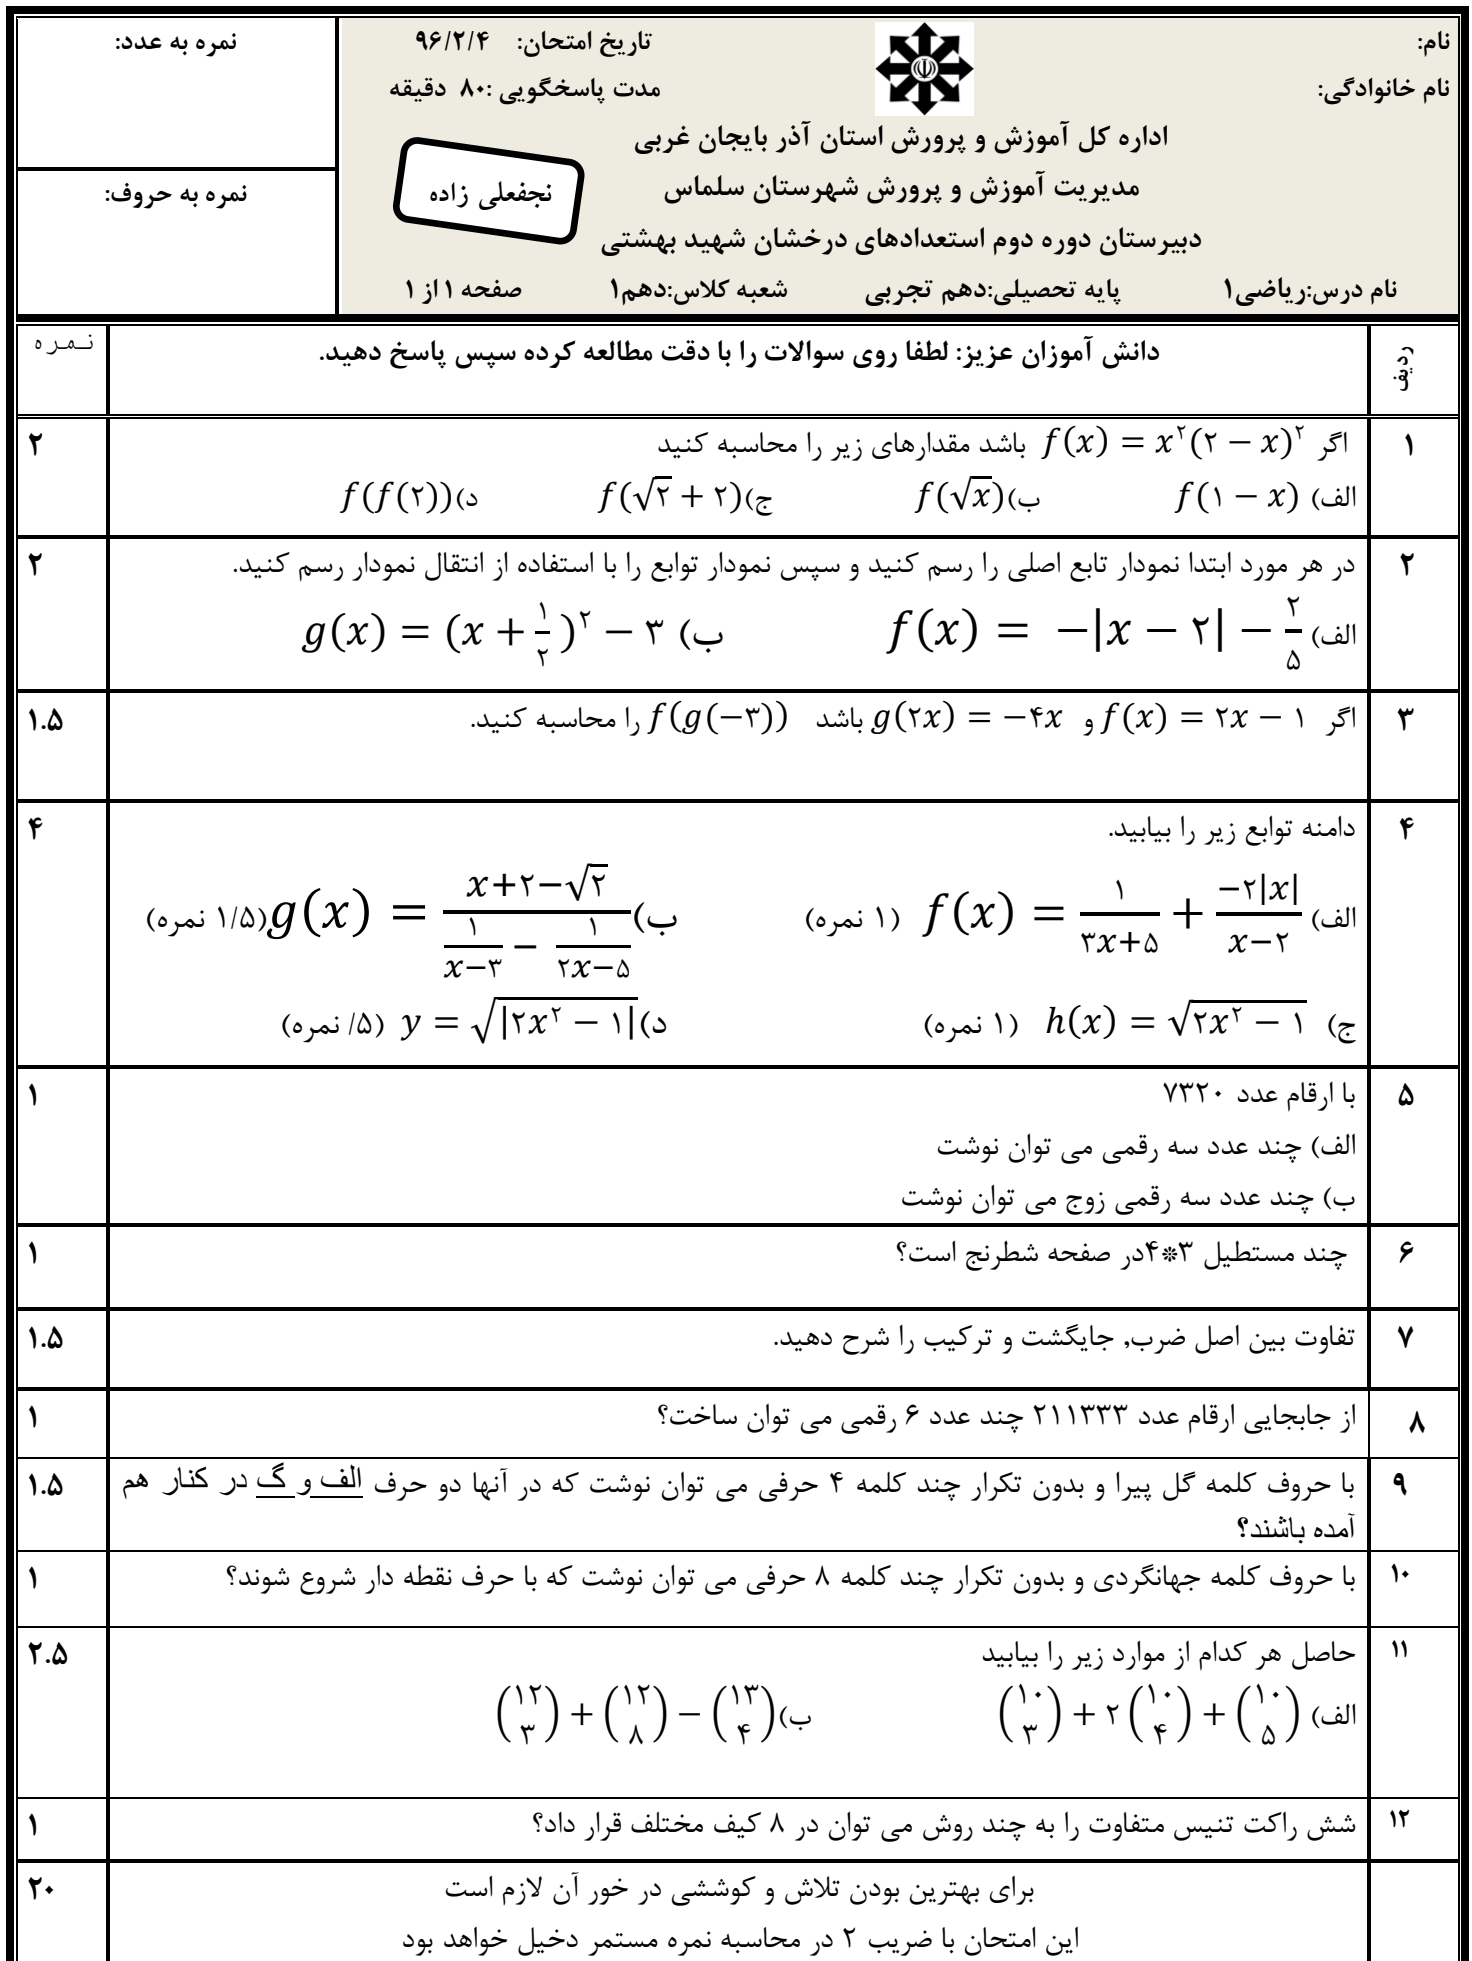 نام:
تاریخ امتحان: ۹۶/۲/۴
نمره به عدد:
نام خانوادگی:
مدت پاسخگویی :۸۰ دقیقه
اداره کل آموزش و پرورش استان آذر بایجان غربی
مدیریت آموزش و پرورش شهرستان سلماس
نجفعلی زاده
نمره به حروف:
دبیرستان دوره دوم استعدادهای درخشان شهید بهشتی
نام درس:ریاضی۱ پایه تحصیلی:دهم تجربی شعبه کلاس:دهم۱ صفحه ۱ از ۱
ردیف
دانش آموزان عزیز: لطفا روی سوالات را با دقت مطالعه کرده سپس پاسخ دهید.
نـمـره
۱ اگر f(x) = x^۲(۲ − x)^۲ باشد مقدارهای زیر را محاسبه کنید ۲
الف) f(۱ − x) ب)f(√x) ج)f(√۲ + ۲) د)f(f(۲))
۲ در هر مورد ابتدا نمودار تابع اصلی را رسم کنید و سپس نمودار توابع را با استفاده از انتقال نمودار رسم کنید. ۲
الف) f(x) = −|x − ۲| − ۲/۵ ب) g(x) = (x + ۱/۲)^۲ − ۳
۳ اگر f(x) = ۲x − ۱ و g(۲x) = −۴x باشد f(g(−۳)) را محاسبه کنید. ۱.۵
۴ دامنه توابع زیر را بیابید. ۴
الف) f(x) = ۱/(۳x+۵) + (−۲|x|)/(x−۲) (۱ نمره) ب)g(x) = (x+۲−√۲)/(۱/(x−۳) − ۱/(۲x−۵)) (۱/۵ نمره)
ج) h(x) = √(۲x^۲ − ۱) (۱ نمره) د)y = √(|۲x^۲ − ۱|) (۵/ نمره)
۵ با ارقام عدد ۷۳۲۰ ۱
الف) چند عدد سه رقمی می توان نوشت
ب) چند عدد سه رقمی زوج می توان نوشت
۶ چند مستطیل ۳*۴در صفحه شطرنج است؟ ۱
۷ تفاوت بین اصل ضرب, جایگشت و ترکیب را شرح دهید. ۱.۵
۸ از جابجایی ارقام عدد ۲۱۱۳۳۳ چند عدد ۶ رقمی می توان ساخت؟ ۱
۹ با حروف کلمه گل پیرا و بدون تکرار چند کلمه ۴ حرفی می توان نوشت که در آنها دو حرف الف و گ در کنار هم ۱.۵
آمده باشند؟
۱۰ با حروف کلمه جهانگردی و بدون تکرار چند کلمه ۸ حرفی می توان نوشت که با حرف نقطه دار شروع شوند؟ ۱
۱۱ حاصل هر کدام از موارد زیر را بیابید ۲.۵
الف) (۱۰ ۳) + ۲(۱۰ ۴) + (۱۰ ۵) ب)(۱۲ ۳) + (۱۲ ۸) − (۱۳ ۴)
۱۲ شش راکت تنیس متفاوت را به چند روش می توان در ۸ کیف مختلف قرار داد؟ ۱
برای بهترین بودن تلاش و کوششی در خور آن لازم است ۲۰
این امتحان با ضریب ۲ در محاسبه نمره مستمر دخیل خواهد بود